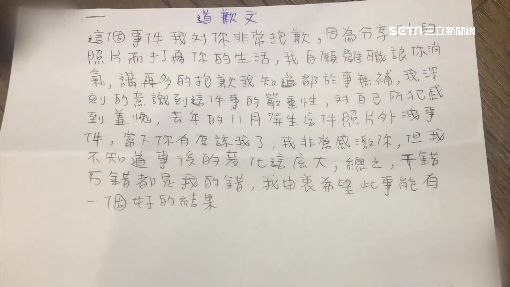 SETN 三立新聞網
道歉文
這個事件我對你非常抱歉,因為分享你的
照片而打擾你的生活,我自願離職讓你消
氣,講再多的抱歉我知道都於事無補,我深
刻的意識到這件事的嚴重性,對自己所犯感
到羞愧,去年的11月發生這件照片外洩事
件,當下你有原諒我了,我非常感激你,但我
不知道事後的變化這麼大,總之,千錯
万錯都是我的錯,我由衷希望此事能有
一個好的結果